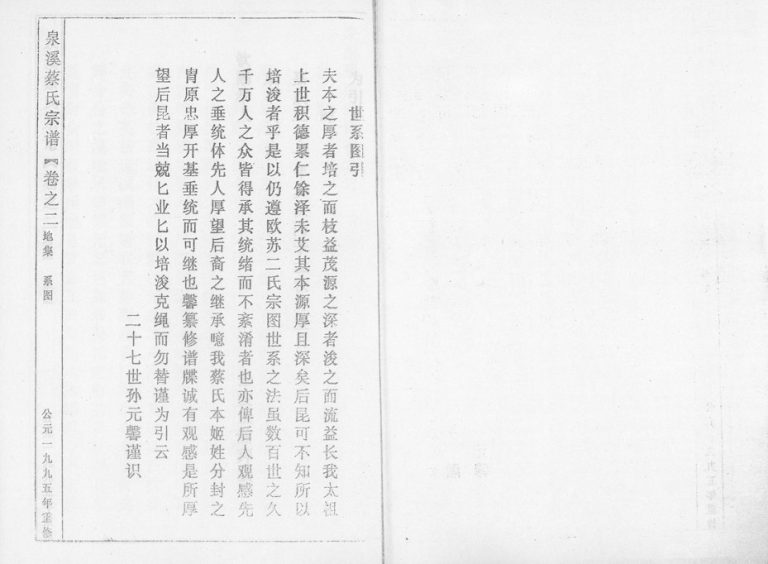 世系图引
夫本之厚者培之而枝益茂源之深者浚之而流益长我太祖
上世积德累仁馀泽未艾其本源厚且深矣后昆可不知所以
培浚者乎是以仍遵欧苏二氏宗图世系之法虽数百世之久
千万人之众皆得承其统绪而不紊淆者也亦俾后人观感先
人之垂统体先人厚望后裔之继承噫我蔡氏本姬姓分封之
胄原忠厚开基垂统而可继也馨纂修谱牒诚有观感是所厚
望后昆者当兢匕业匕以培浚克绳而勿替谨为引云
二十七世孙元馨谨识
泉溪蔡氏宗谱【卷之二地集 系图
公元一九九五年重修